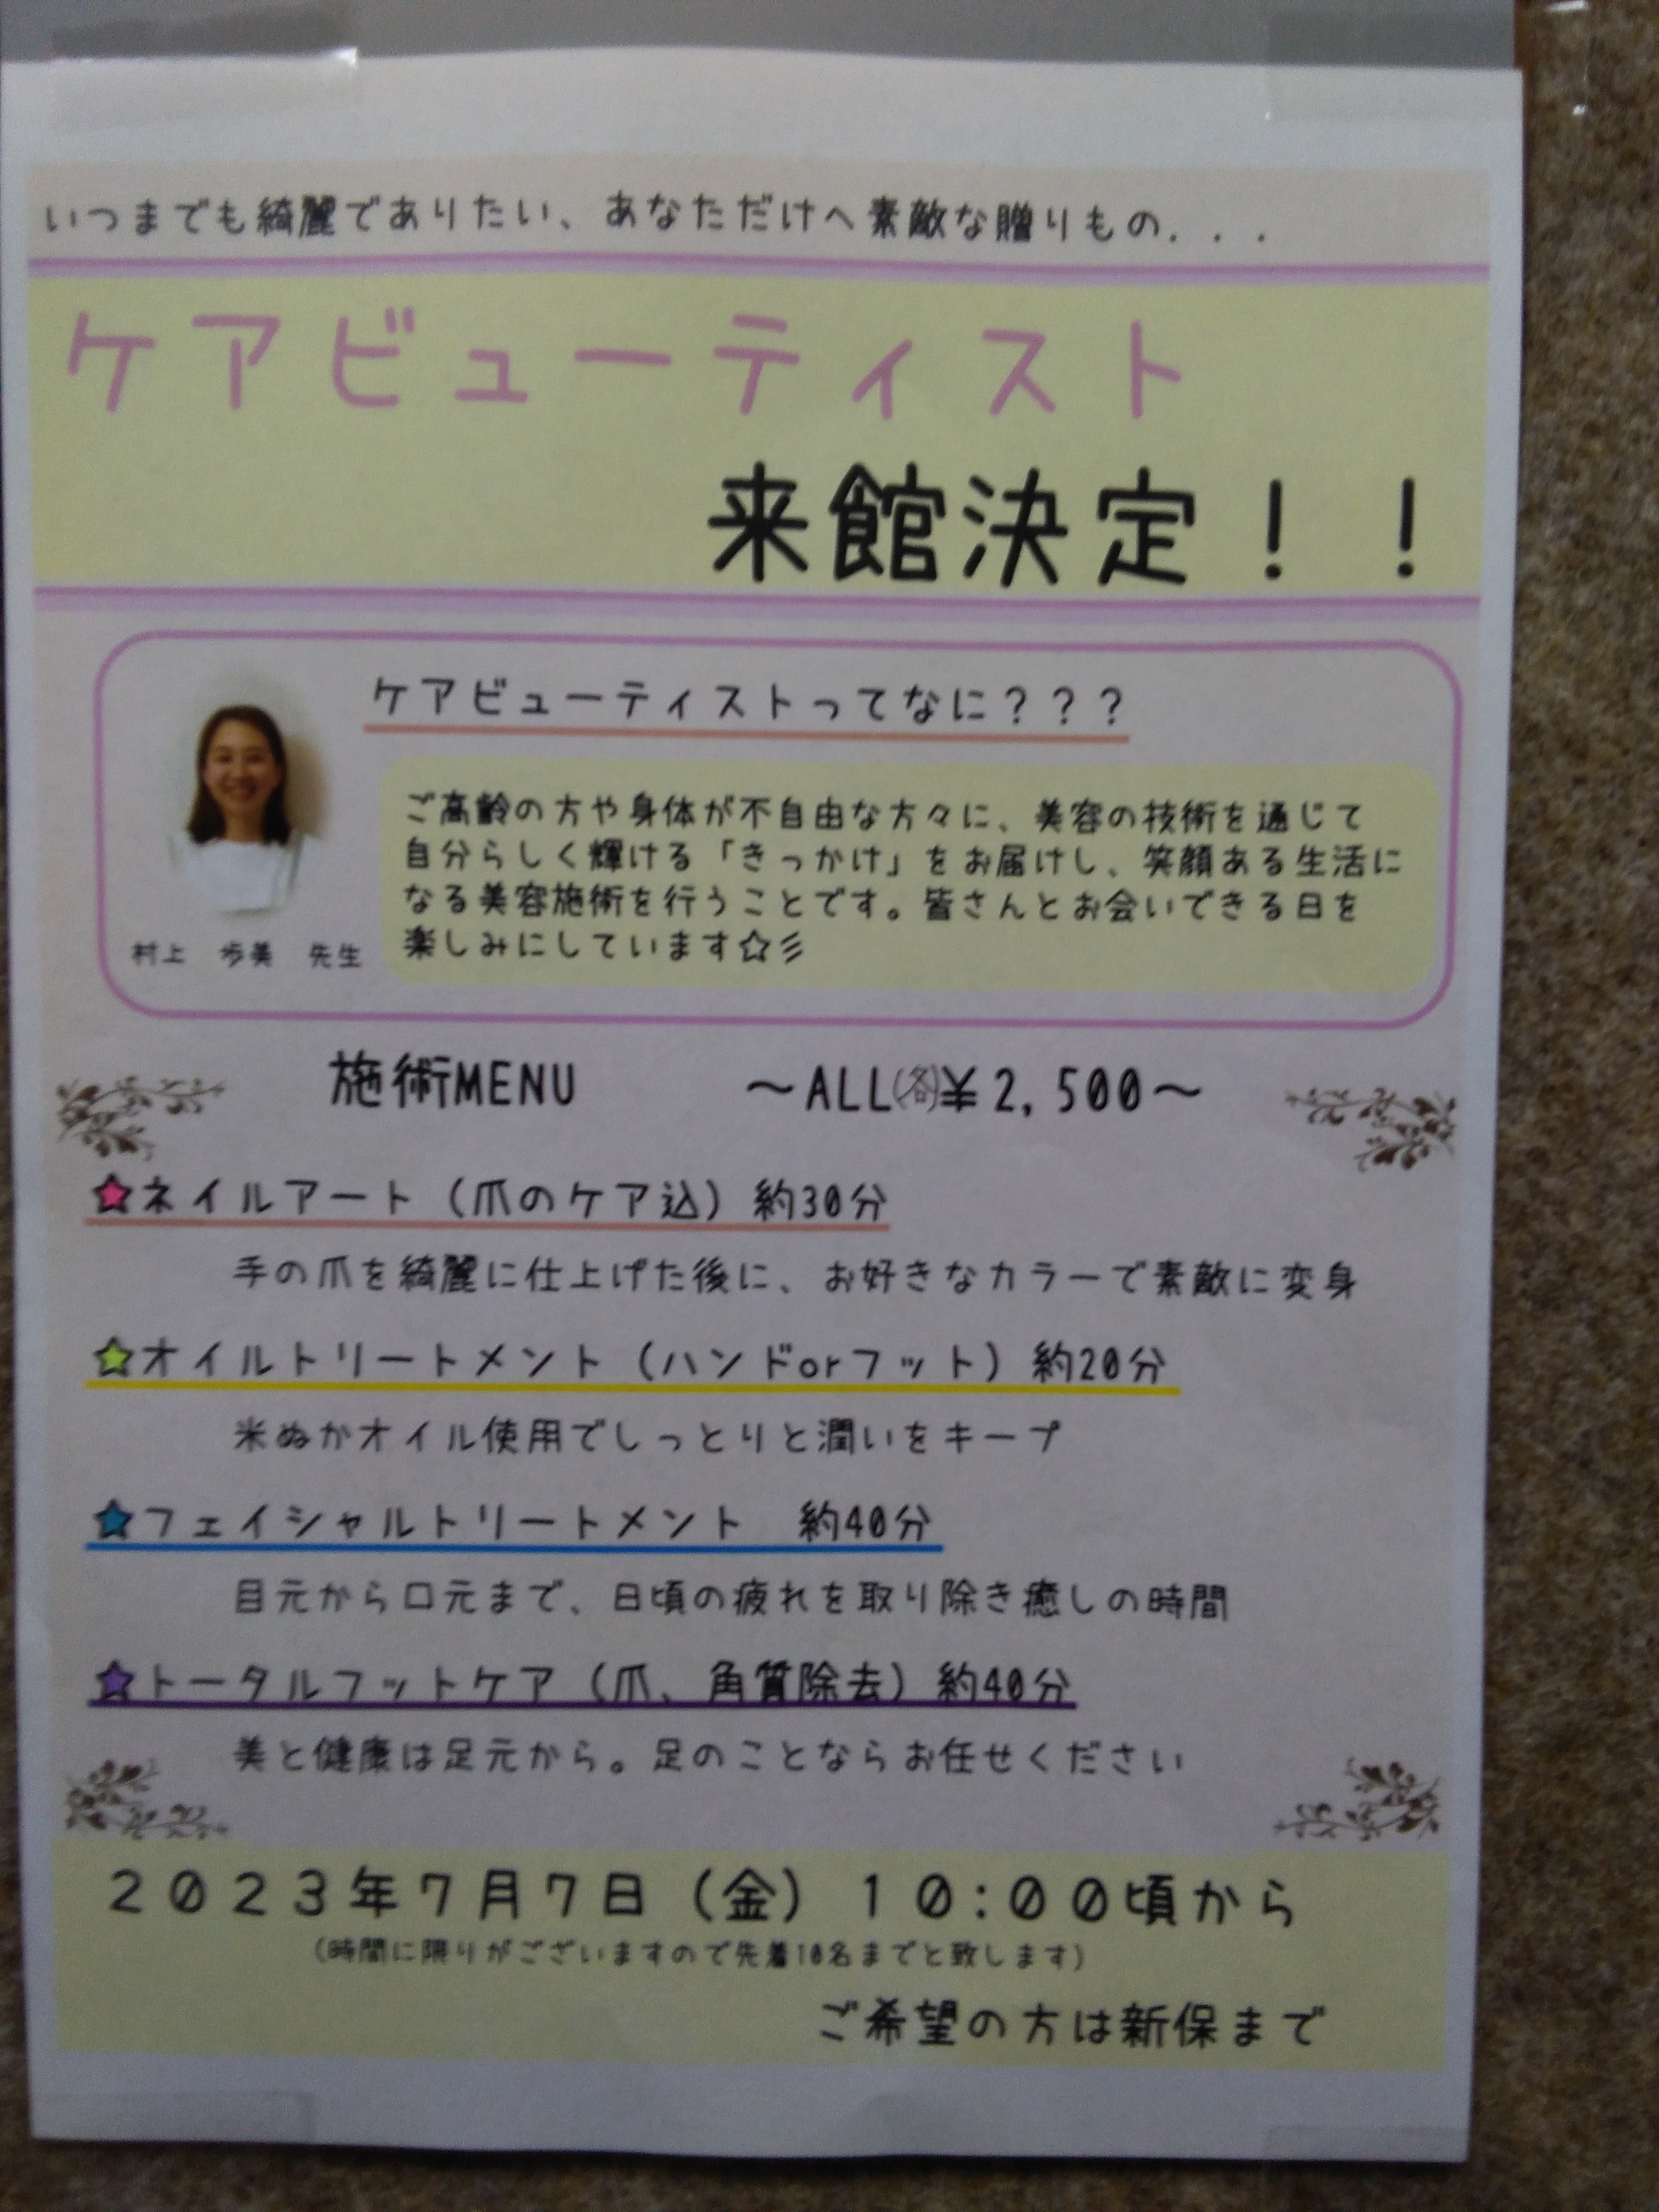 いつまでも綺麗でありたい、あなただけへ素敵な贈りもの...
ケアビューティスト
来館決定！！
ケアビューティストってなに？？？
ご高齢の方や身体が不自由な方々に、美容の技術を通じて
自分らしく輝ける「きっかけ」をお届けし、笑顔ある生活に
なる美容施術を行うことです。皆さんとお会いできる日を
楽しみにしています☆彡
村上　歩美　先生
施術MENU　～ALL㈅¥2,500～
★ネイルアート（爪のケア込）約30分
手の爪を綺麗に仕上げた後に、お好きなカラーで素敵に変身
★オイルトリートメント（ハンドorフット）約20分
米ぬかオイル使用でしっとりと潤いをキープ
★フェイシャルトリートメント　約40分
目元から口元まで、日頃の疲れを取り除き癒しの時間
★トータルフットケア（爪、角質除去）約40分
美と健康は足元から。足のことならお任せください
２０２３年７月７日（金）１０:００頃から
（時間に限りがございますので先着10名までと致します）
ご希望の方は新保まで